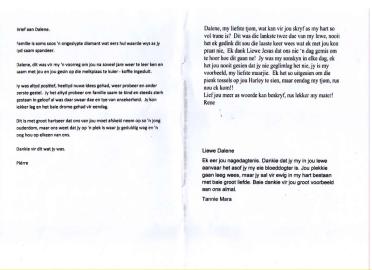 Wief aan Dalene.
Familie is soms soos 'n ongeslypte diamant wat eers hul waarde wys as jy
lyd saam spandeer.
Dalene, dit was vir my 'n voorreg om jou na soveel jare weer te leer ken en
saam met jou en jou gesin op die melkplaas te kuier - koffie ingesluit.
Jy was altyd positief, heeltyd nuwe idees gehad, weer probeer en ander
eerste gestel. Jy het altyd probeer om familie saam te bind en steeds sterk
gestaan in geloof al was daar swaar dae en toe van onsekerheid. Jy kon
lekker lag en het baie drome gehad vir eendag.
Dit is met groot hartseer dat ons van jou moet afskeid neem op so 'n jong
ouderdom, maar ons weet dat jy op 'n plek is waar jy geduldig wag en 'n
oog hou op elkeen van ons.
Dankie vir dit wat jy was.
Piérre
Dalene, my liefste tjom, wat kan vir jou skryf as my hart so
vol trane is? Dit was die lankste twee dae van my lewe, nooit
het ek gedink dit sou die laaste keer wees wat ek met jou kon
praat nie. Ek dank Liewe Jesus dat ons sie 'n dag gemis om
te hoor hoe dit gaan ne! Jy was my sonskyn in elke dag, ek
het jou nooit gesien dat jy nie geglimlag het nie, jy is my
voorbeeld, my liefste maatjie. Ek het so uitgesien om die
pienk tossels op jou Harley te sien, maar eendag my tjom, rus
nou ek kom!!
Lief jou meer as woorde kan beskryf, rus lekker my mater!
Rene
Liewe Dalene
Ek eer jou nagedagtenis. Dankie dat jy my in jou lewe
aanvaar het asof jy my eie bloeddogter is. Jou plekkie
gaan leeg wees, maar jy sal vir ewig in my hart bestaan
met baie groot liefde. Baie dankie vir jou groot voorbeeld
aan ons almal.
Tannie Mara